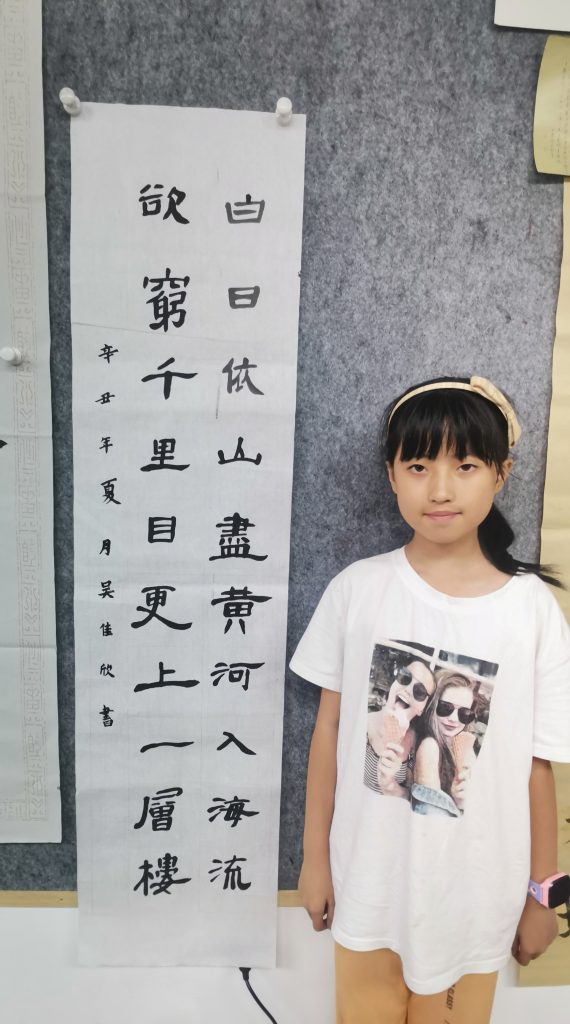 白日依山盡黄河入海流
欲窮千里目更上一層樓
辛丑年夏月吴佳欣書